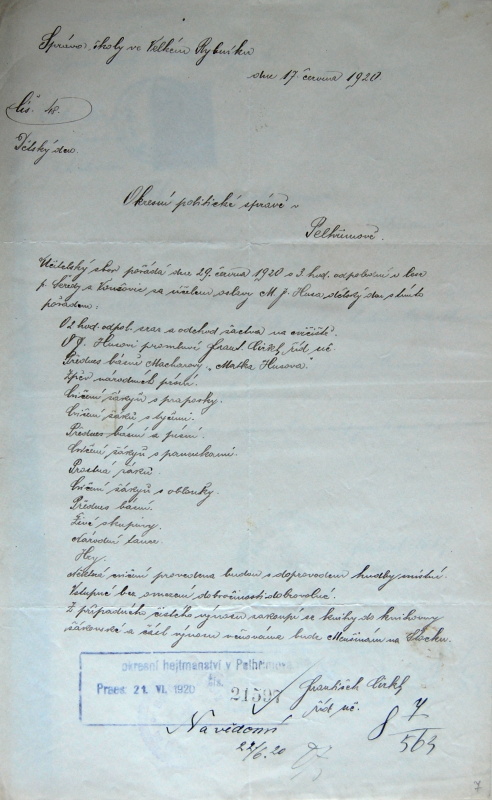 Správa školy ve Velkém Rybníku
dne 17. června 1920.
čís. 48.
Dětský den.
Okresní politické správě v
Pelhřimově.
Učitelský sbor pořádá dne 29. června 1920 o 3. hod. odpolední v lese
p. za účelem oslavy M. J. Husa dětský den s tímto
pořadem:
O 2 hod. odpol. sraz a odchod žactva na cvičiště.
O J. Husovi promluví Frant. Cirkl, říd. uč.
Přednes básně Macharovy „Matka Husova“
Zpěv národních písní.
Cvičení žákyň s praporky.
Cvičení žáků s tyčemi.
Přednes básní a písní.
Cvičení žákyň s
Prostná žáků.
Cvičení žákyň s oblouky.
Přednes básní.
Živé skupiny.
Národní tance.
Hry.
Některá cvičení provedena budou s doprovodem hudby místní.
Vstupné bez omezení dobročinnosti dobrovolné.
Z případného čistého výnosu zakoupí se knihy do knihovny
žákovské a část výnosu věnována bude Menšinám na
okresní hejtmanství v Pelhřimově
Praes. 21. VI. 1920 čís. 21597
František Cirkl,
říd. uč.
Na vědomí
22/6. 20
8 7/563
7